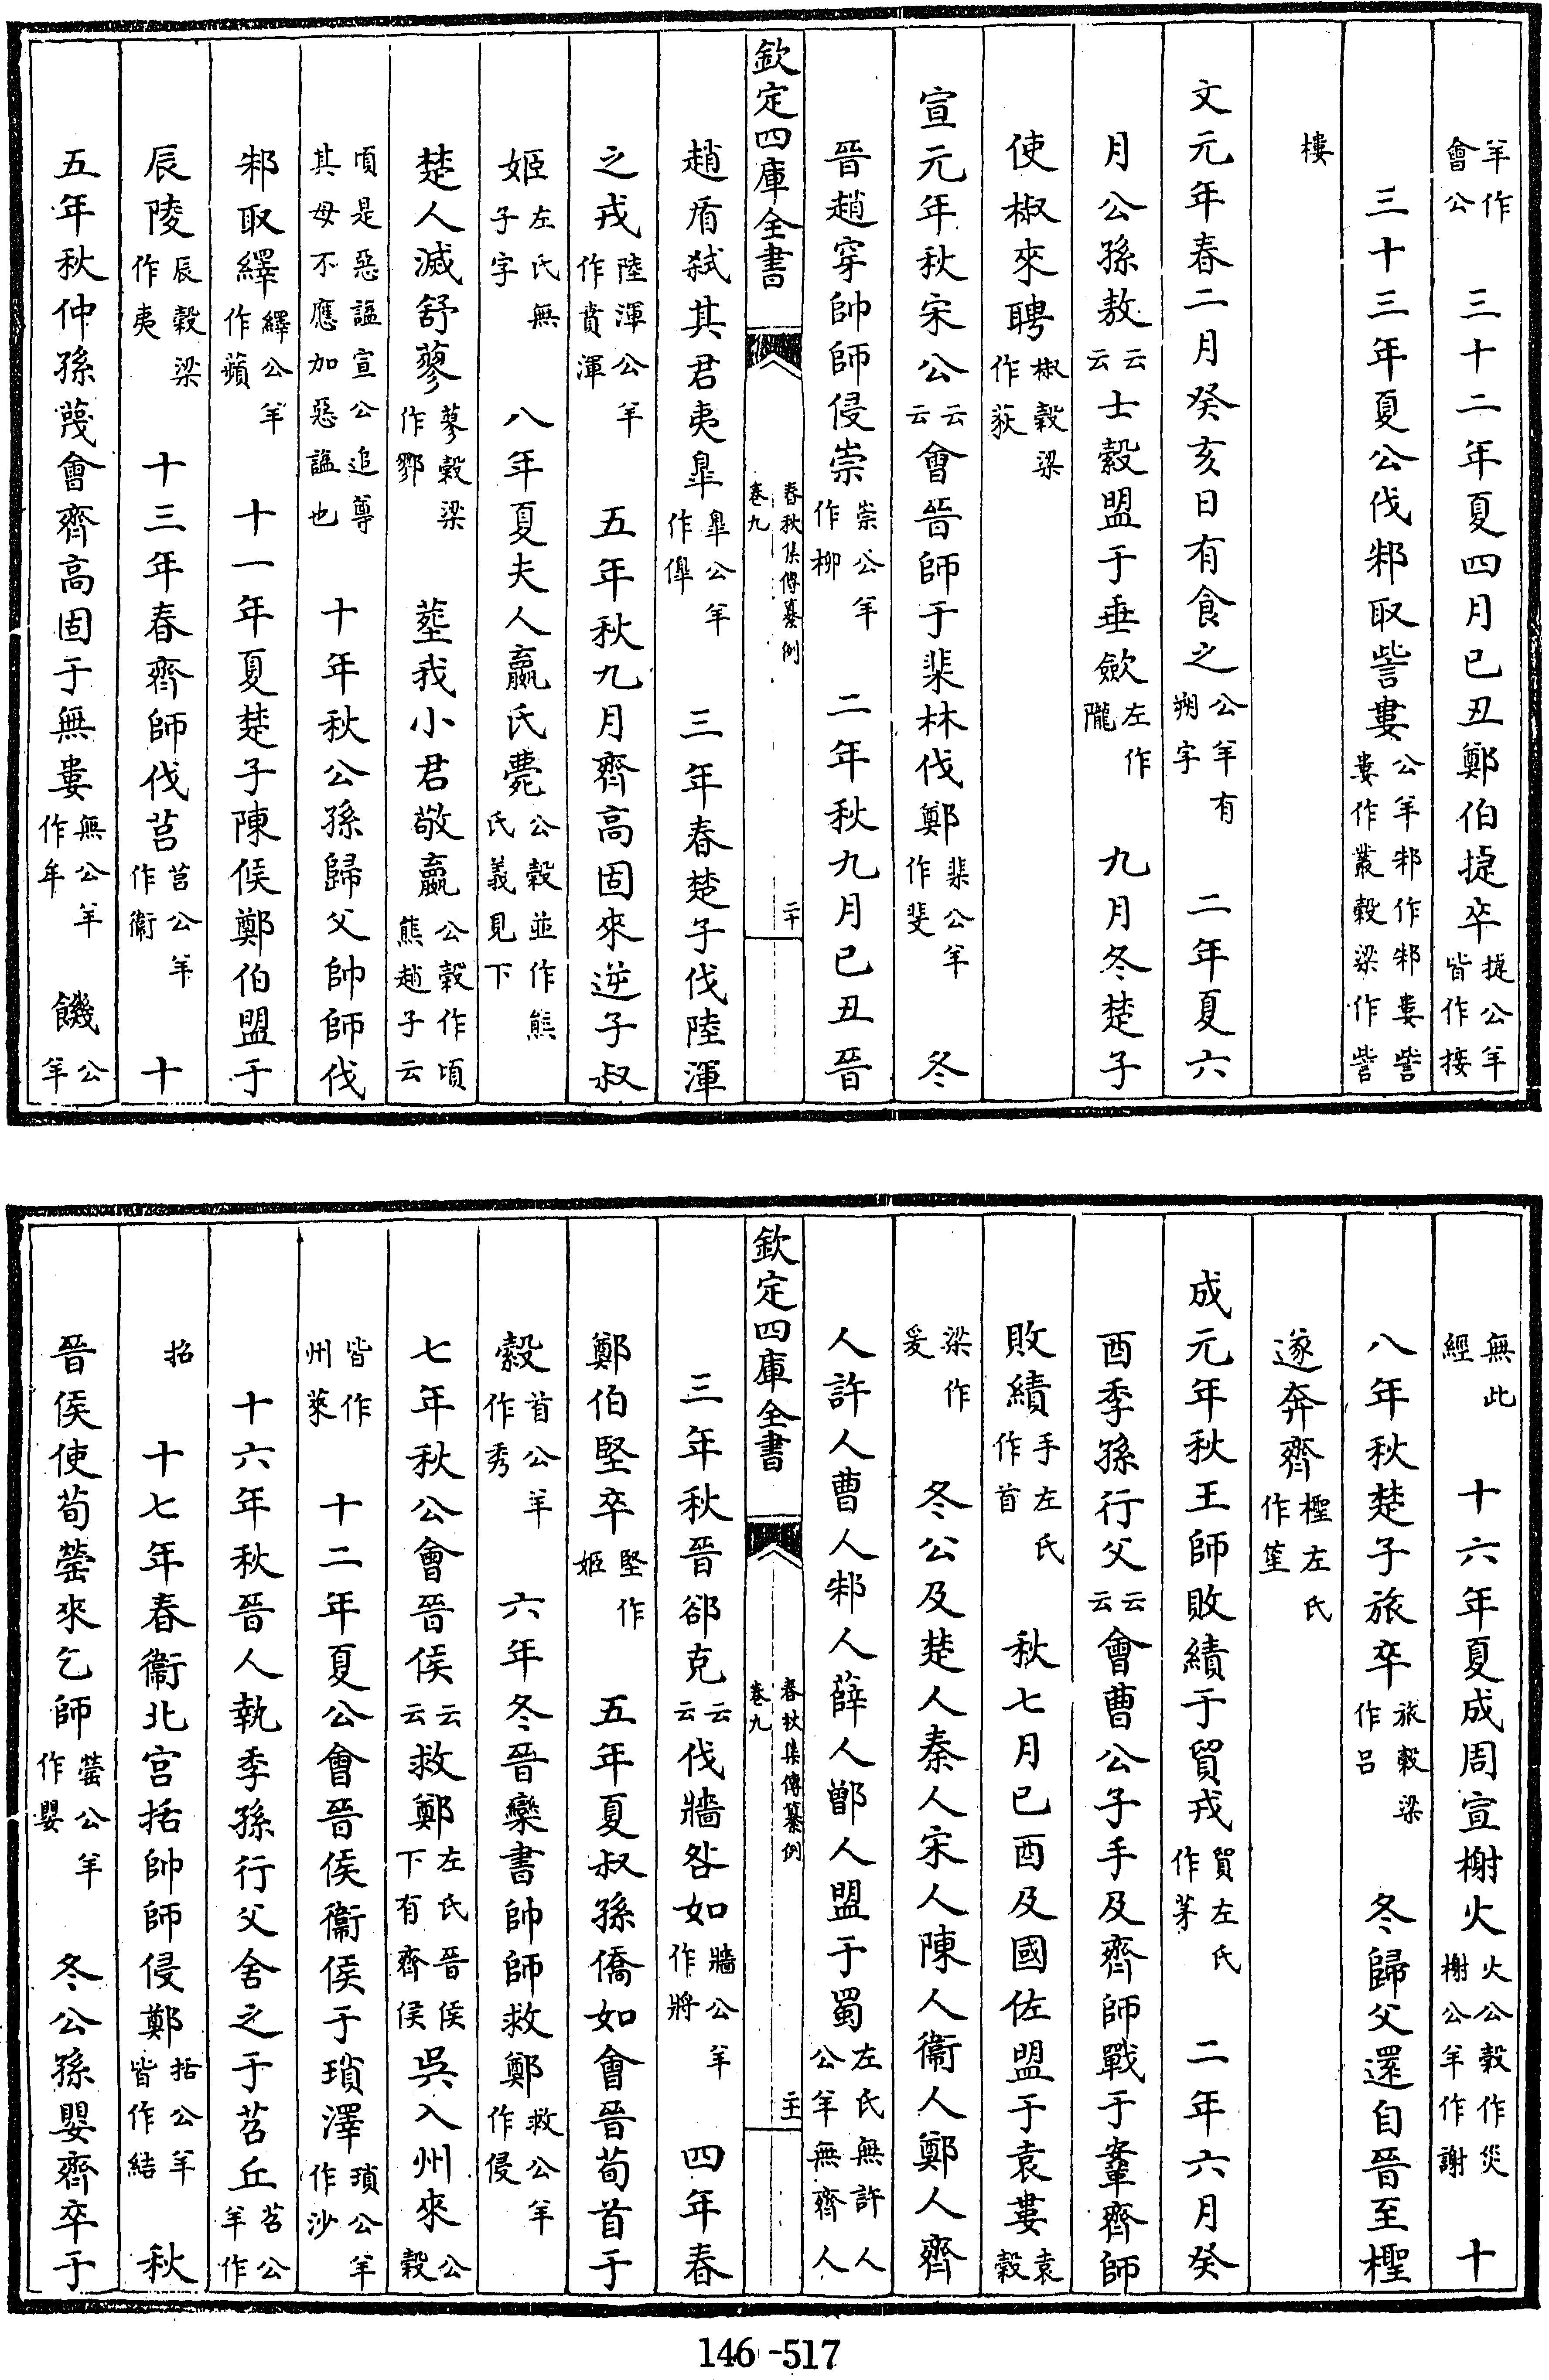 羊作會公　三十二年夏四月已丑鄭伯捷卒捷公羊皆作接
三十三年夏公伐邾取訾婁公羊邾作邾婁訾婁作叢穀梁作訾
樓
文元年春二月癸亥日有食之公羊有朔字　二年夏六
月公孫敖云云士縠盟于垂歛左作隴　九月冬楚子
使椒來聘椒穀梁作荻
宣元年秋宋公云云會晉師于棐林伐鄭棐公羊作斐　冬
晉趙穿帥師侵崇崇公羊作柳　二年秋九月已丑晉
欽定四庫全書　春秋集傳纂例　卷九　二十
趙盾弑其君夷臯臯公羊作獋　三年春楚子伐陸渾
之戎陸渾公羊作賁渾　五年秋九月齊高固來逆子叔
姬左氏無子字　八年夏夫人嬴氏薨公穀並作熊氏義見下
楚人滅舒蓼蓼穀梁作鄝　葬我小君敬嬴公穀作頃熊趙子云
頃是惡謚宣公追尊其母不應加惡謚也　十年秋公孫歸父帥師伐
邾取繹繹公羊作蘱　十一年夏楚子陳侯鄭伯盟于
辰陵辰穀梁作夷　十三年春齊師伐莒莒公羊作衞　十
五年秋仲孫蔑會齊高固于無婁無公羊作牟　饑公羊
無此經　十六年夏成周宣榭火火公穀作災榭公羊作謝　十
八年秋楚子旅卒旅穀梁作吕　冬歸父還自晉至檉
遂奔齊檉左氏作笙
成元年秋王師敗績于貿戎貿左氏作茅　二年六月癸
酉季孫行父云云會曹公子手及齊師戰于鞌齊師
敗績手左氏作首　秋七月已酉及國佐盟于袁婁袁穀
梁作爰　冬公及楚人秦人宋人陳人衞人鄭人齊
人許人曹人邾人薛人鄫人盟于蜀左氏無許人公羊無齊人
欽定四庫全書　春秋集傳纂例　卷九　二十一
三年秋晉郤克云云伐牆咎如牆公羊作將　四年春
鄭伯堅卒堅作姬　五年夏叔孫僑如會晉荀首于
穀首公羊作秀　六年冬晉欒書帥師救鄭救公羊作侵
七年秋公會晉侯云云救鄭左氏晉侯下有齊侯　吳入州來公穀
皆作州萊　十二年夏公會晉侯衞侯于瑣澤瑣公羊作沙
十六年秋晉人執季孫行父舍之于苕丘苕公羊作
招　十七年春衞北宫括帥師侵鄭括公羊皆作結　秋
晉侯使荀罃來乞師罃公羊作嬰　冬公孫嬰齊卒于
146-517